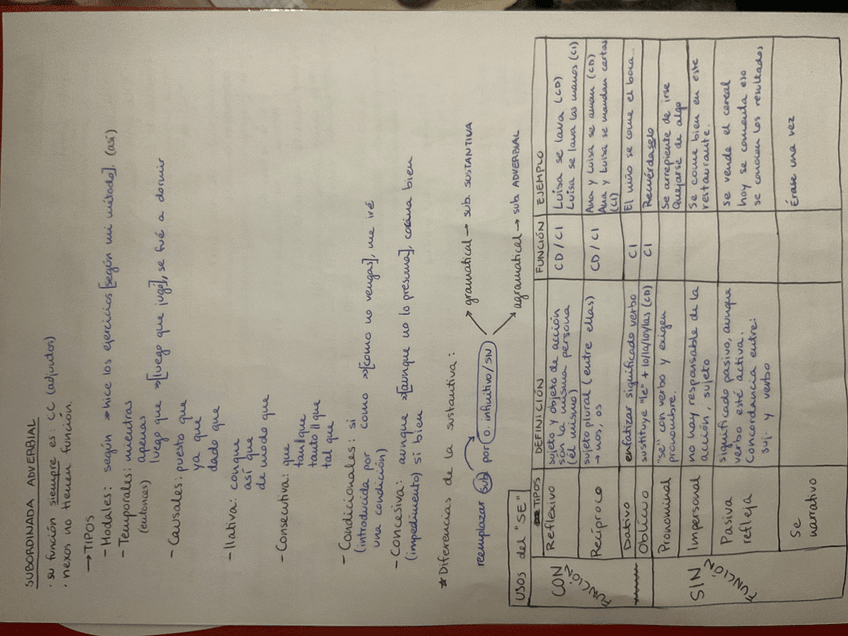 SUBORDINADA ADVERBIAL
· su función siempre es: CC (adjuntos)
· nexos no tienen función.
→ TIPOS
- Modales: según » hice los ejercicios [según mi método]. (así)
- Temporales: mientras
(entonces) apenas
luego que »[luego que jugó], se fué a dormir
- Causales: puesto que
ya que
dado que
- Ilativa: conque
así que
de modo que
- Consecutiva: que
tan || que
tanto || que
tal que
- Condicionales: si
(introducida por como »[como no vengas], me iré
una condición)
- Concesiva: aunque »[aunque no lo presuma], cocina bien
(impedimento) si bien
* Diferencias de la sustantiva:
→ gramatical → sub. SUSTANTIVA
reemplazar sub por O. infinitivo/SN
→ agramatical → sub ADVERBIAL
USOS del "SE"
TIPOS DEFINICIÓN FUNCIÓN EJEMPLO
CON FUNCIÓN
Reflexivo
sujeto y objeto de acción
son la misma persona
(él mismo)
CD / CI
Luisa se lava (CD)
Luisa se lava las manos (CI)
Recíproco
sujeto plural (entre ellas)
→ nos, os
CD / CI
Ana y Luisa se aman (CD)
Ana y Luisa se mandan cartas
(CI)
Dativo
enfatizar significado verbo
CI
El niño se come el boca..
Oblicuo
sustituye "le" + lo/la/los/las (CD)
CI
Recuérdaselo
SIN FUNCIÓN
Pronominal
"se" con verbo y exigen
pronombre.
Se arrepiente de irse
Quejarse de algo
Impersonal
no hay responsable de la
acción, sujeto
Se come bien en este
restaurante.
Pasiva
refleja
significado pasivo, aunque
verbo esté activa.
Concordancia entre:
suj. y verbo
se vende el cereal
hoy se comenta eso
se conocen los resultados
Se
narrativo
Érase una vez